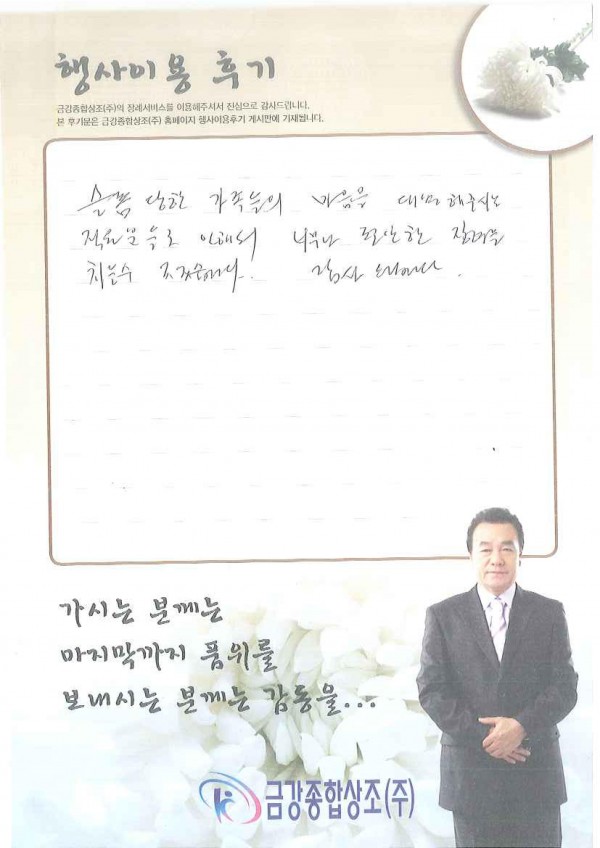 행사이용 후기
금강종합상조(주)의 장례서비스를 이용해주셔서 진심으로 감사드립니다.
본 후기문은 금강종합상조(주) 홈페이지 행사이용후기 게시판에 기재됩니다.
슬픔 당한 가족들의 마음을 대변해주시는
직원분들로 인해서 너무나 편안한 장례를
치를수 감사
가시는 분께는
마지막까지 품위를
보내시는 분께는 감동을...
금강종합상조(주)